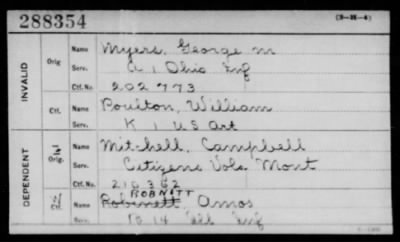 288354
(3-25-4)
INVALID
Orig
Name Myers, George M
Serv. A 1 Ohio Inf
Ctf. No. 202773
Ctf.
Name Boulton, William
Serv. K 1 US Art
DEPENDENT
Orig.
Name Mitchell, Campbell
Serv. Citizens Vols Mont
Ctf. No. 210362
ROBNETT
Ctf.
Name Robinett, Amos
Serv. 14 Ill Inf